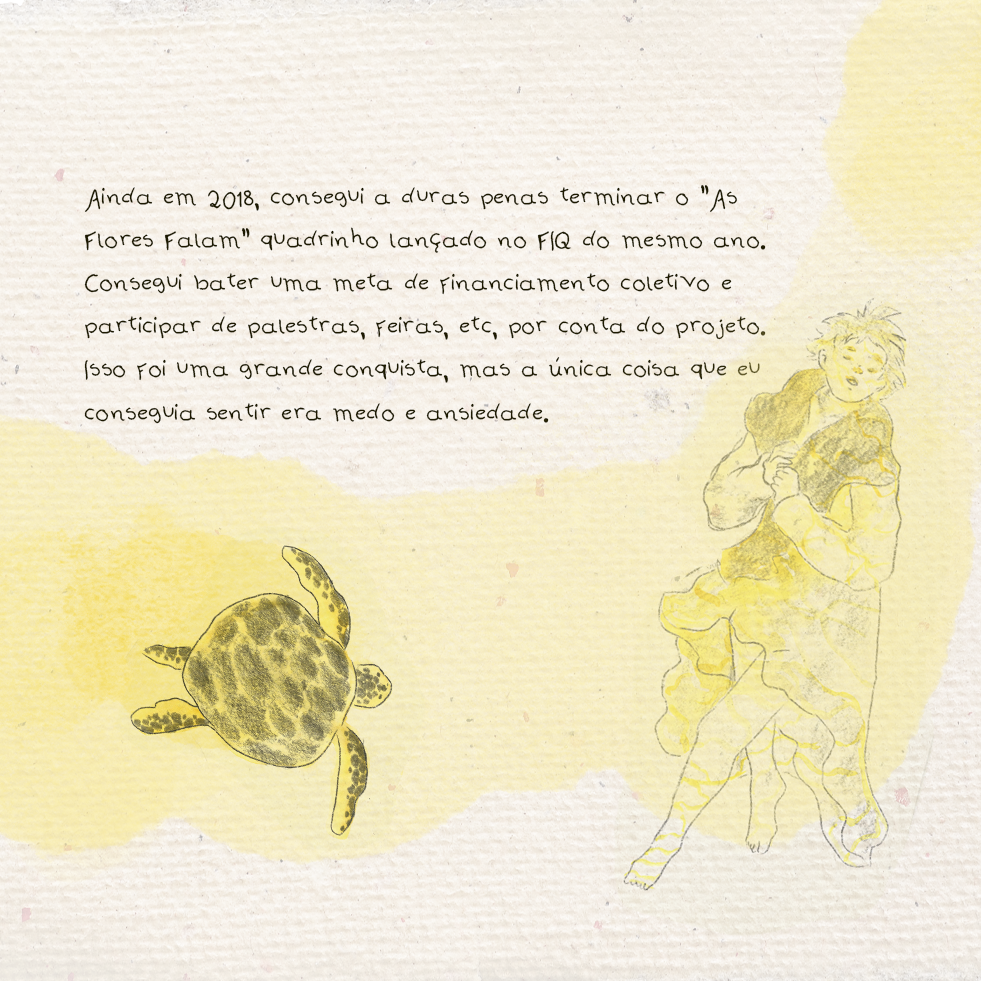 Ainda em 2018, consegui a duras penas terminar o "As
Flores Falam" quadrinho lançado no FIQ do mesmo ano.
Consegui bater uma meta de financiamento coletivo e
participar de palestras, feiras, etc, por conta do projeto.
Isso foi uma grande conquista, mas a única coisa que eu
conseguia sentir era medo e ansiedade.